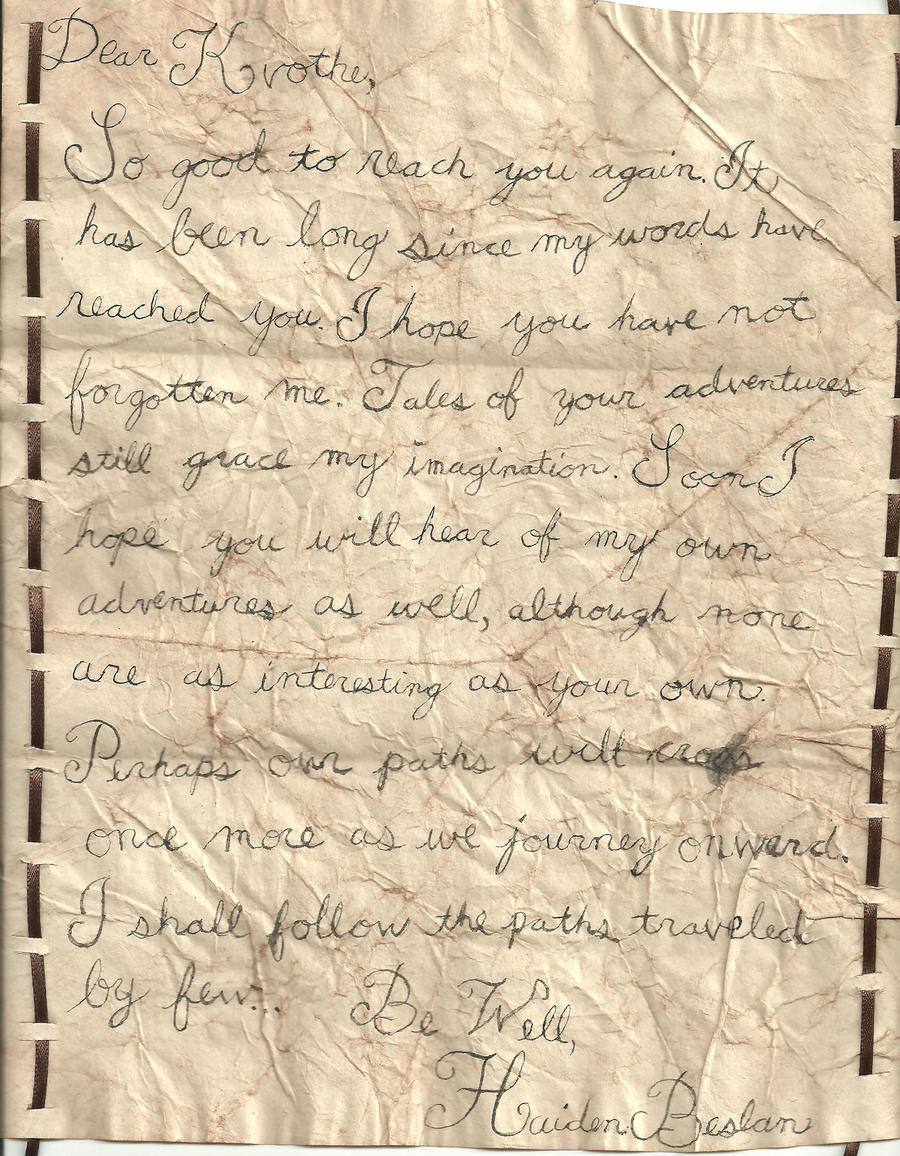 Dear Kvothe,
So good to reach you again. It
has been long since my words have
reached you. I hope you have not
forgotten me. Tales of your adventures
still grace my imagination. Soon I
hope you will hear of my own
adventures as well, although none
are as interesting as your own.
Perhaps our paths will cross
once more as we journey onward.
I shall follow the paths traveled
by few... Be Well,
Haiden Beslan